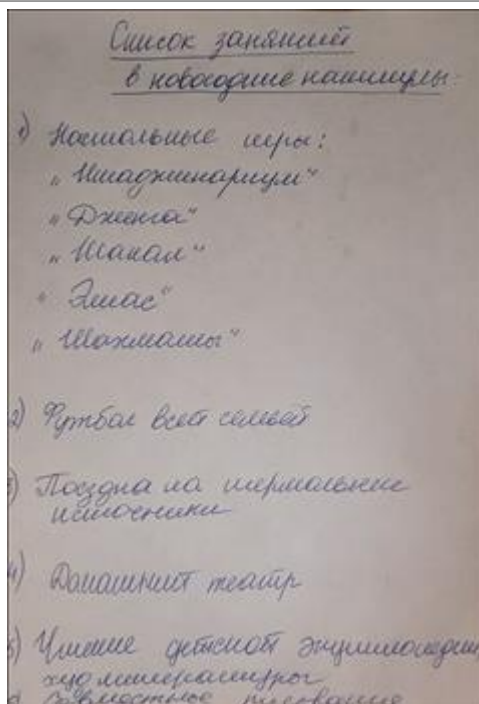 Список занятий
в новогодние каникулы:
1) Настольные игры:
„Имаджинариум“
„Дженга“
„Шакал“
„Элиас“
„Шахматы“
2) Футбол всей семьёй
3) Поездка на термальные
источники
4) Домашний театр
5) Чтение детской энциклопедии,
худ литературы
совместное рисование